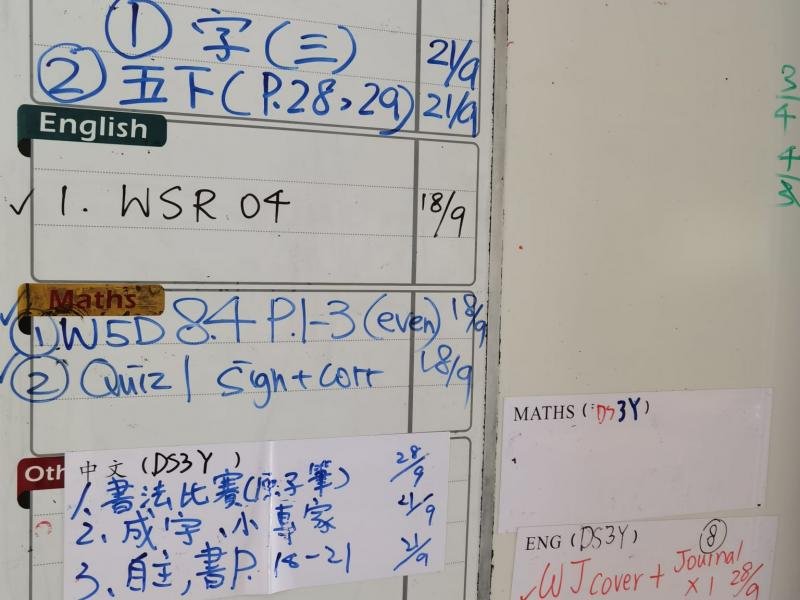 ① 字(三) 21/9
② 五下(P.28,29) 21/9
English
✓ 1. WSR 04 18/9
Maths
✓ ① W5D 8.4 P.1-3 (even) 18/9
✓ ② Quiz 1 Sign + corr 18/9
Oth
中文 (DS3Y)
1. 書法比賽(原子筆) 28/9
2. 成字、小專家 21/9
3. 自主,書P. 18-21 21/9
MATHS (DS3Y)
ENG (DS3Y) ⑧
✓ WJ cover + Journal x 1 28/9